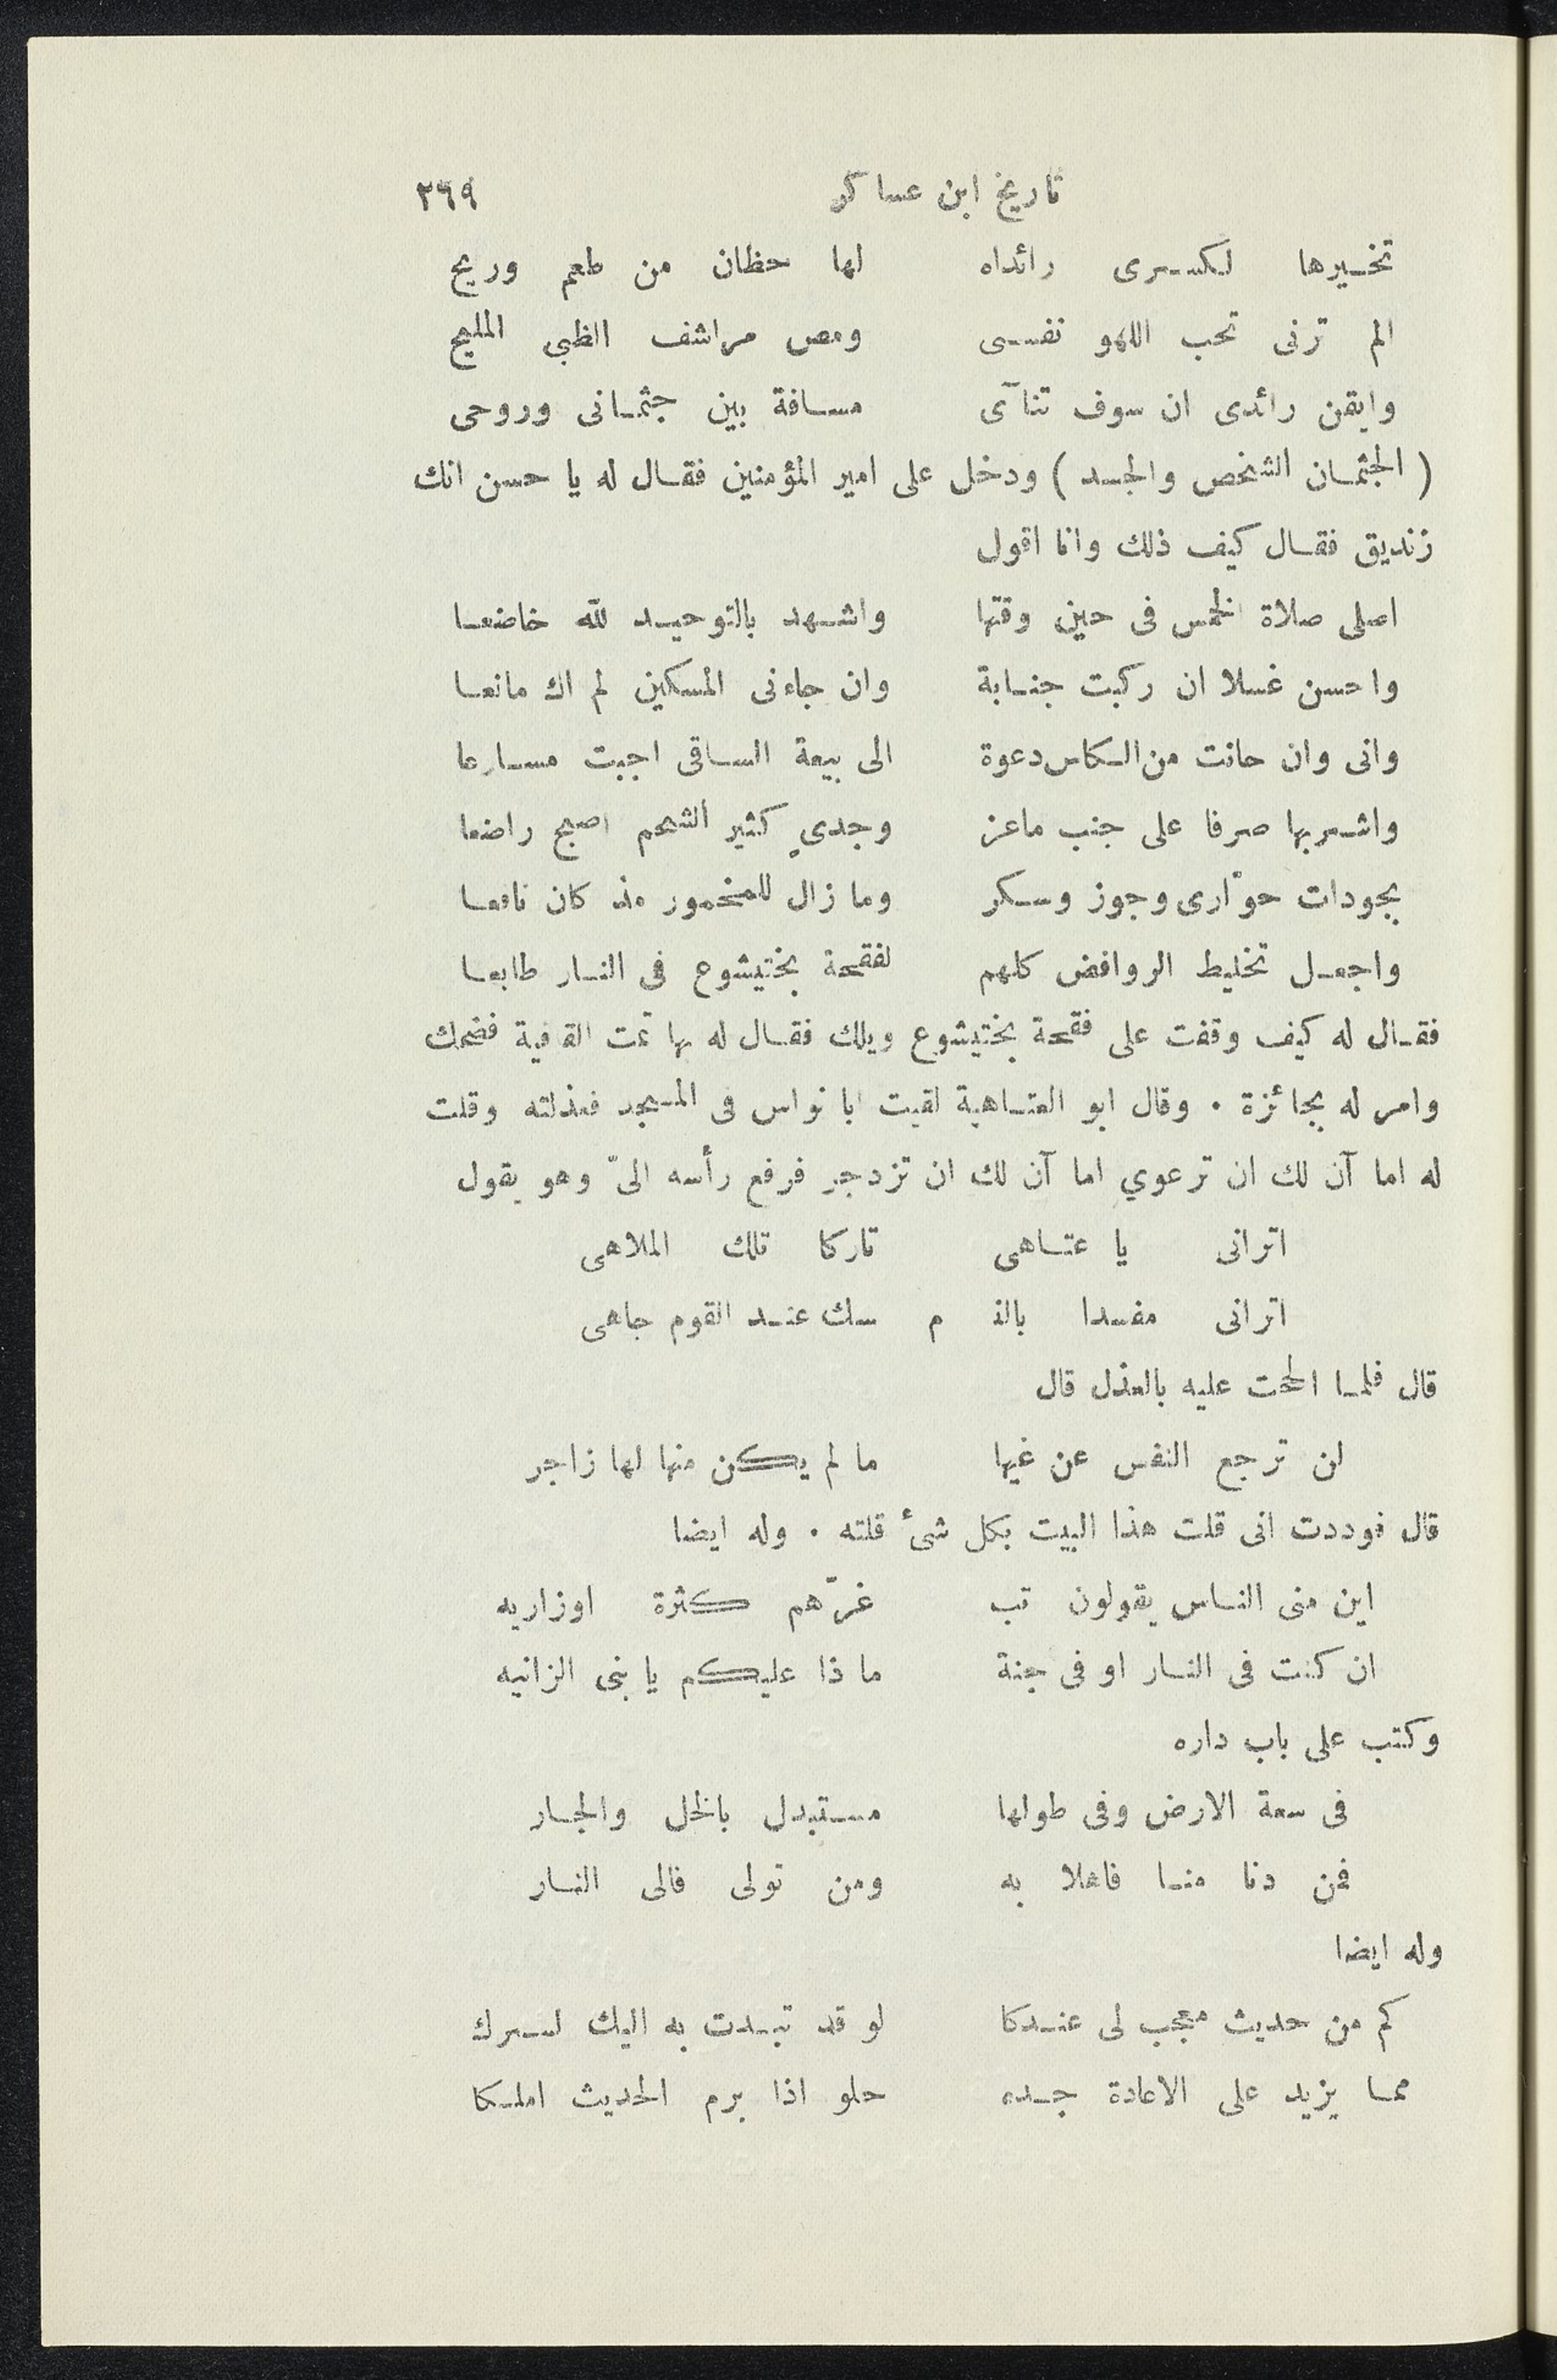 تاريخ ابن عساكر ٢٦٩
تخيرها لكسرى رائداه لها حظان من طعم وريح
الم ترنى تحب اللهو نفسى ومص مراشف الظبى المليح
وايقن رائدى ان سوف تنآى مسافة بين جثمانى وروحى
( الجثمان الشخص والجسد ) ودخل على امير المؤمنين فقال له يا حسن انك
زنديق فقال كيف ذلك وانا اقول
اصلى صلاة الخمس فى حين وقتها واشهد بالتوحيد لله خاضعا
واحسن غسلا ان ركبت جنابة وان جاءنى المسكين لم اك مانعا
وانى وان حانت من الكاس دعوة الى بيعة الساقى اجبت مسارعا
واشربها صرفا على جنب ماعز وجدىٍ كثير الشحم اصبح راضعا
بجودات حوّارى وجوز وسكر وما زال للمخمور مذ كان نافعا
واجعل تخليط الروافض كلهم لفقحة بختيشوع فى النار طابعا
فقال له كيف وقفت على فقحة بختيشوع ويلك فقال له بها تمت القافية فضحك
وامر له بجائزة . وقال ابو العتاهية لقيت ابا نواس فى المسجد فعذلته وقلت
له اما آن لك ان ترعوي اما آن لك ان تزدجر فرفع رأسه الىّ وهو يقول
اترانى يا عتاهى تاركا تلك الملاهى
اترانى مفسدا بالنـ م ـسك عند القوم جاهى
قال فلما الححت عليه بالعذل قال
لن ترجع النفس عن غيها ما لم يكن منها لها زاجر
قال فوددت انى قلت هذا البيت بكل شئ قلته . وله ايضا
اين منى الناس يقولون تب غرّهم كثرة اوزاريه
ان كنت فى النار او فى جنة ما ذا عليكم يا بنى الزانيه
وكتب على باب داره
فى سعة الارض وفى طولها مستبدل بالخل والجار
فمن دنا منا فاهلا به ومن تولى فالى النار
وله ايضا
كم من حديث معجب لى عندكا لو قد تبدت به اليك لسرك
مما يزيد على الاعادة جده حلو اذا برم الحديث املكا